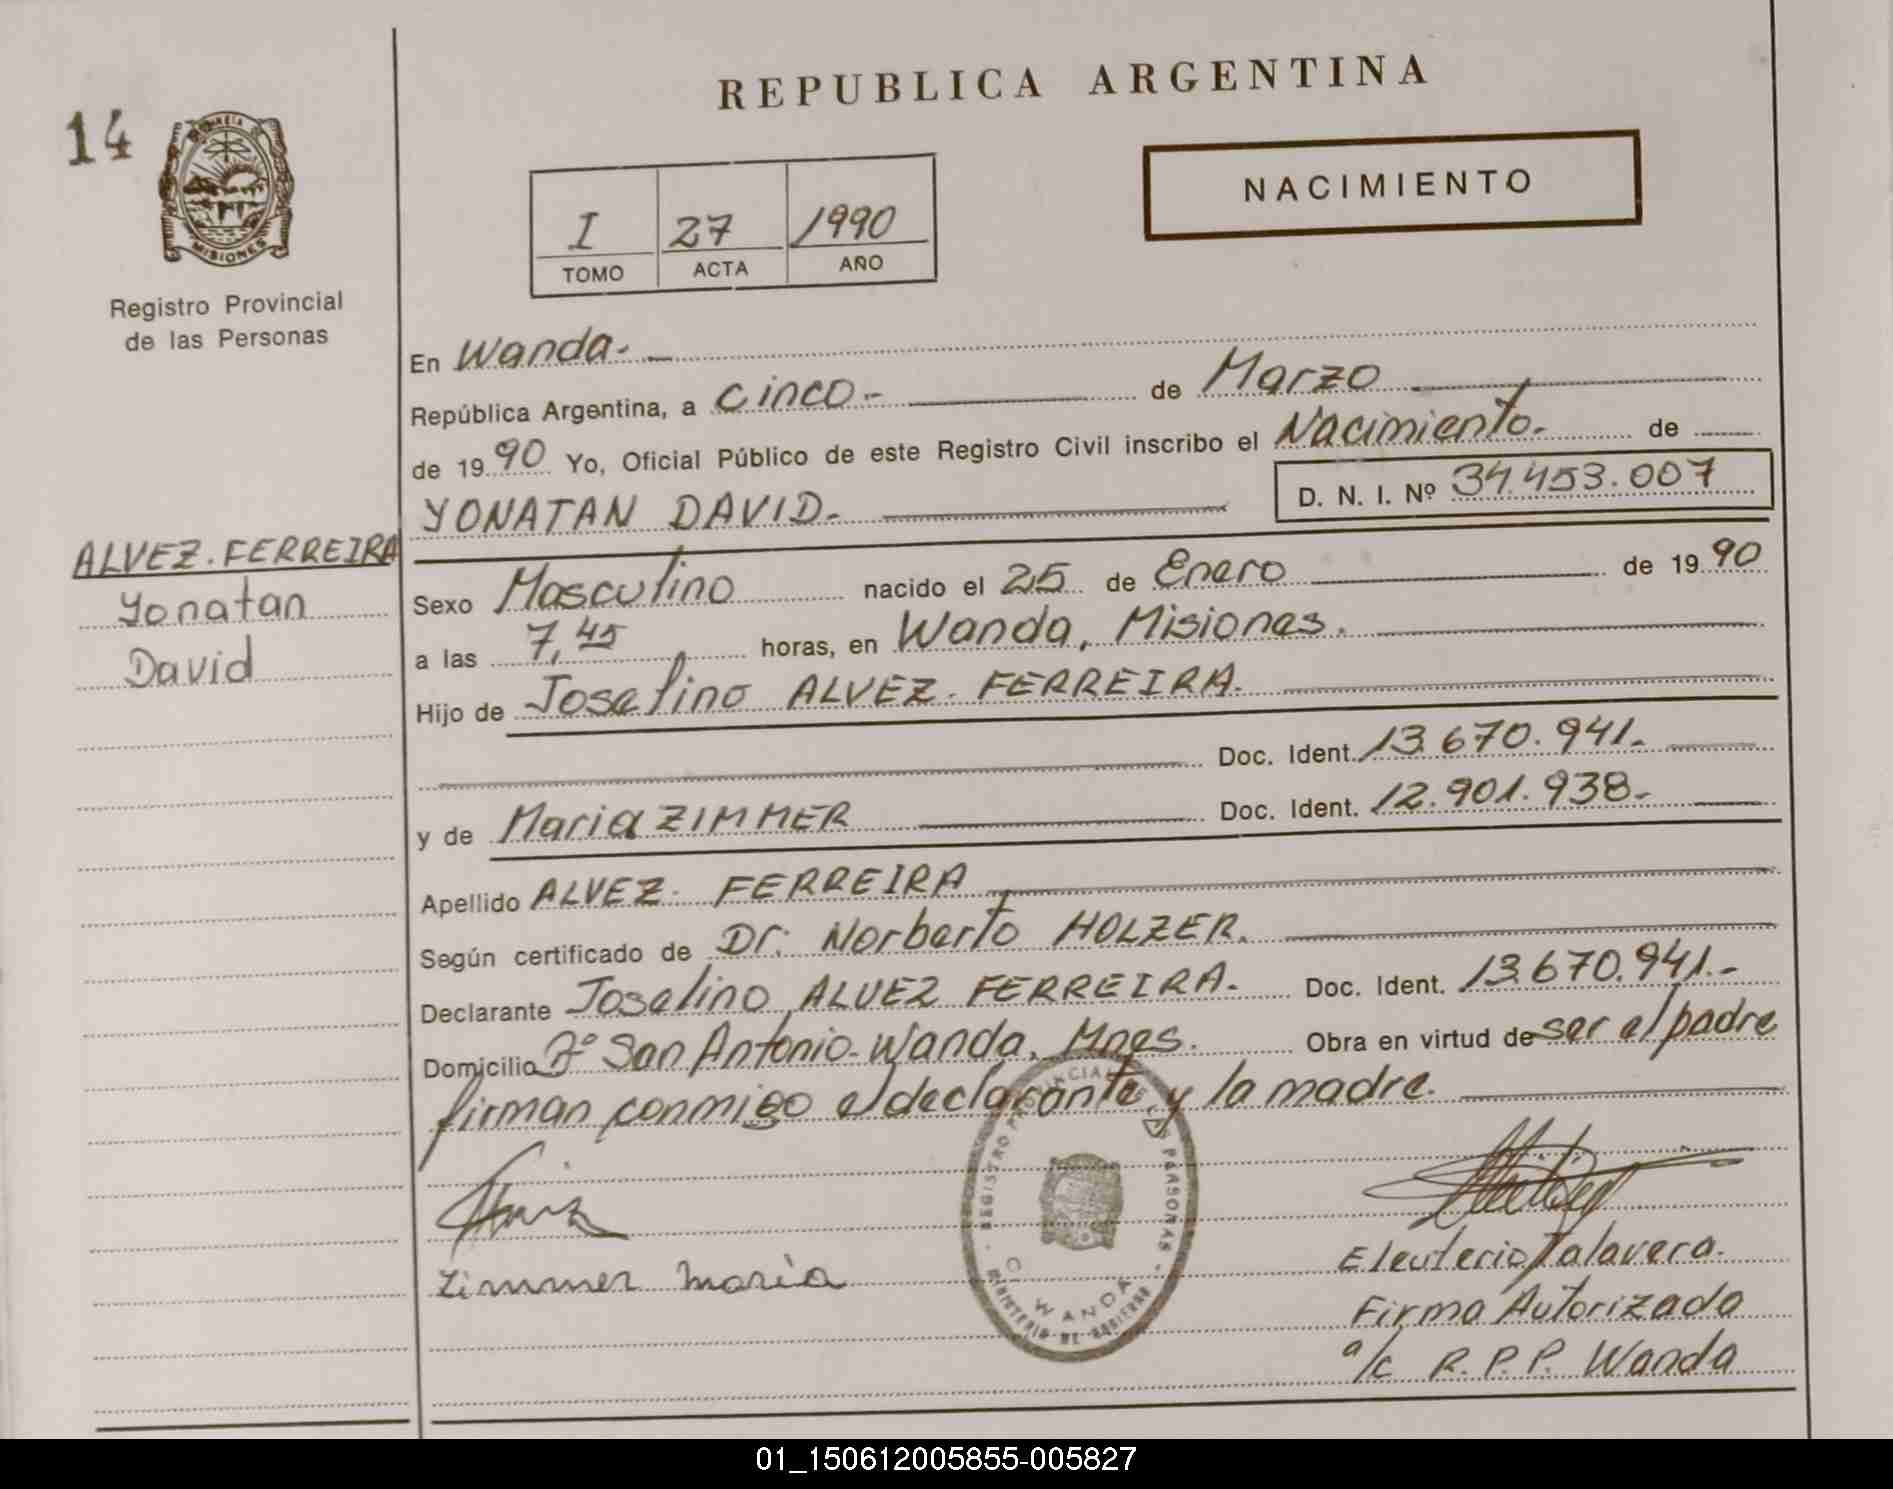 REPUBLICA ARGENTINA
14
PROVINCIA DE
MISIONES
Registro Provincial
de las Personas
NACIMIENTO
I 27 1990
TOMO ACTA AÑO
En Wanda.
República Argentina, a cinco.- de Marzo
de 1990 Yo, Oficial Público de este Registro Civil inscribo el Nacimiento. de
YONATAN DAVID. D. N. I. Nº 34.453.007
ALVEZ. FERREIRA
Yonatan
David
Sexo Masculino nacido el 25 de Enero de 1990
a las 7,45 horas, en Wanda, Misiones.
Hijo de Joselino ALVEZ. FERREIRA.
Doc. Ident. 13.670.941.
y de Maria ZIMMER Doc. Ident. 12.901.938-
Apellido ALVEZ. FERREIRA
Según certificado de Dr. Norberto HOLZER.
Declarante Joselino ALVEZ FERREIRA. Doc. Ident. 13.670.941.-
Domicilio Bº San Antonio. Wanda, Mnes. Obra en virtud de ser el padre
firman conmigo el declarante y la madre.
REGISTRO PROVINCIAL DE LAS PERSONAS
WANDA
MINISTERIO DE GOBIERNO
Zimmer Maria
Eleuterio Talavera.
Firma Autorizada
a/c R. P. P. Wanda
01_150612005855-005827